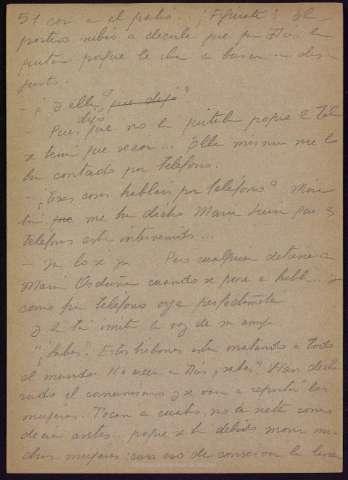 51 con a el patio... ¡Figúrate! El
portero subió a decirle que por Dios
porque le iba a buscar un dis
gusto.
- ¿Y ella?
dijo
Pues que no le gritaba porque el
se tenía que secar... Ella misma me lo
ha contado por teléfono.
- ¿Esas cosas habláis por teléfono?
me ha dicho María Luisa que los
teléfonos están intervenidos...
- Ya lo sé ya. Pero cualquiera detiene a
María Osduña cuando se pone a habl... y
como por teléfono oye perfectamente
Y la tía imitó la voz de su amiga
"¿Sabes? Estos bribones están matando a todo
el mundo. No creen en Dios, ¿sabes? Han decla
rado el comunismo y se van a repartir las
mujeres. Tocan a cuatro, no a siete como
decían antes... porque se han debido morir mu
chas mujeres: como eso de conservar la línea